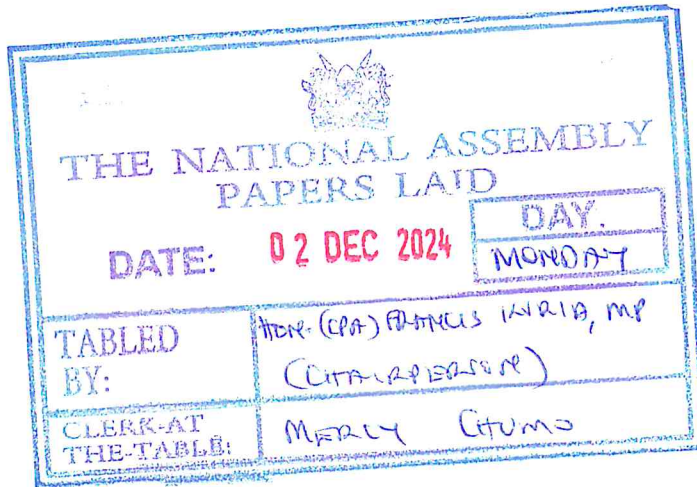 THE NATIONAL ASSEMBLY
PAPERS LAID
DATE: 02 DEC 2024
DAY.
MONDAY
TABLED BY:
HON. (CPA) FRANCIS KURIA, MP
(CHAIRPERSON)
CLERK-AT THE-TABLE:
MERCY CHUMO